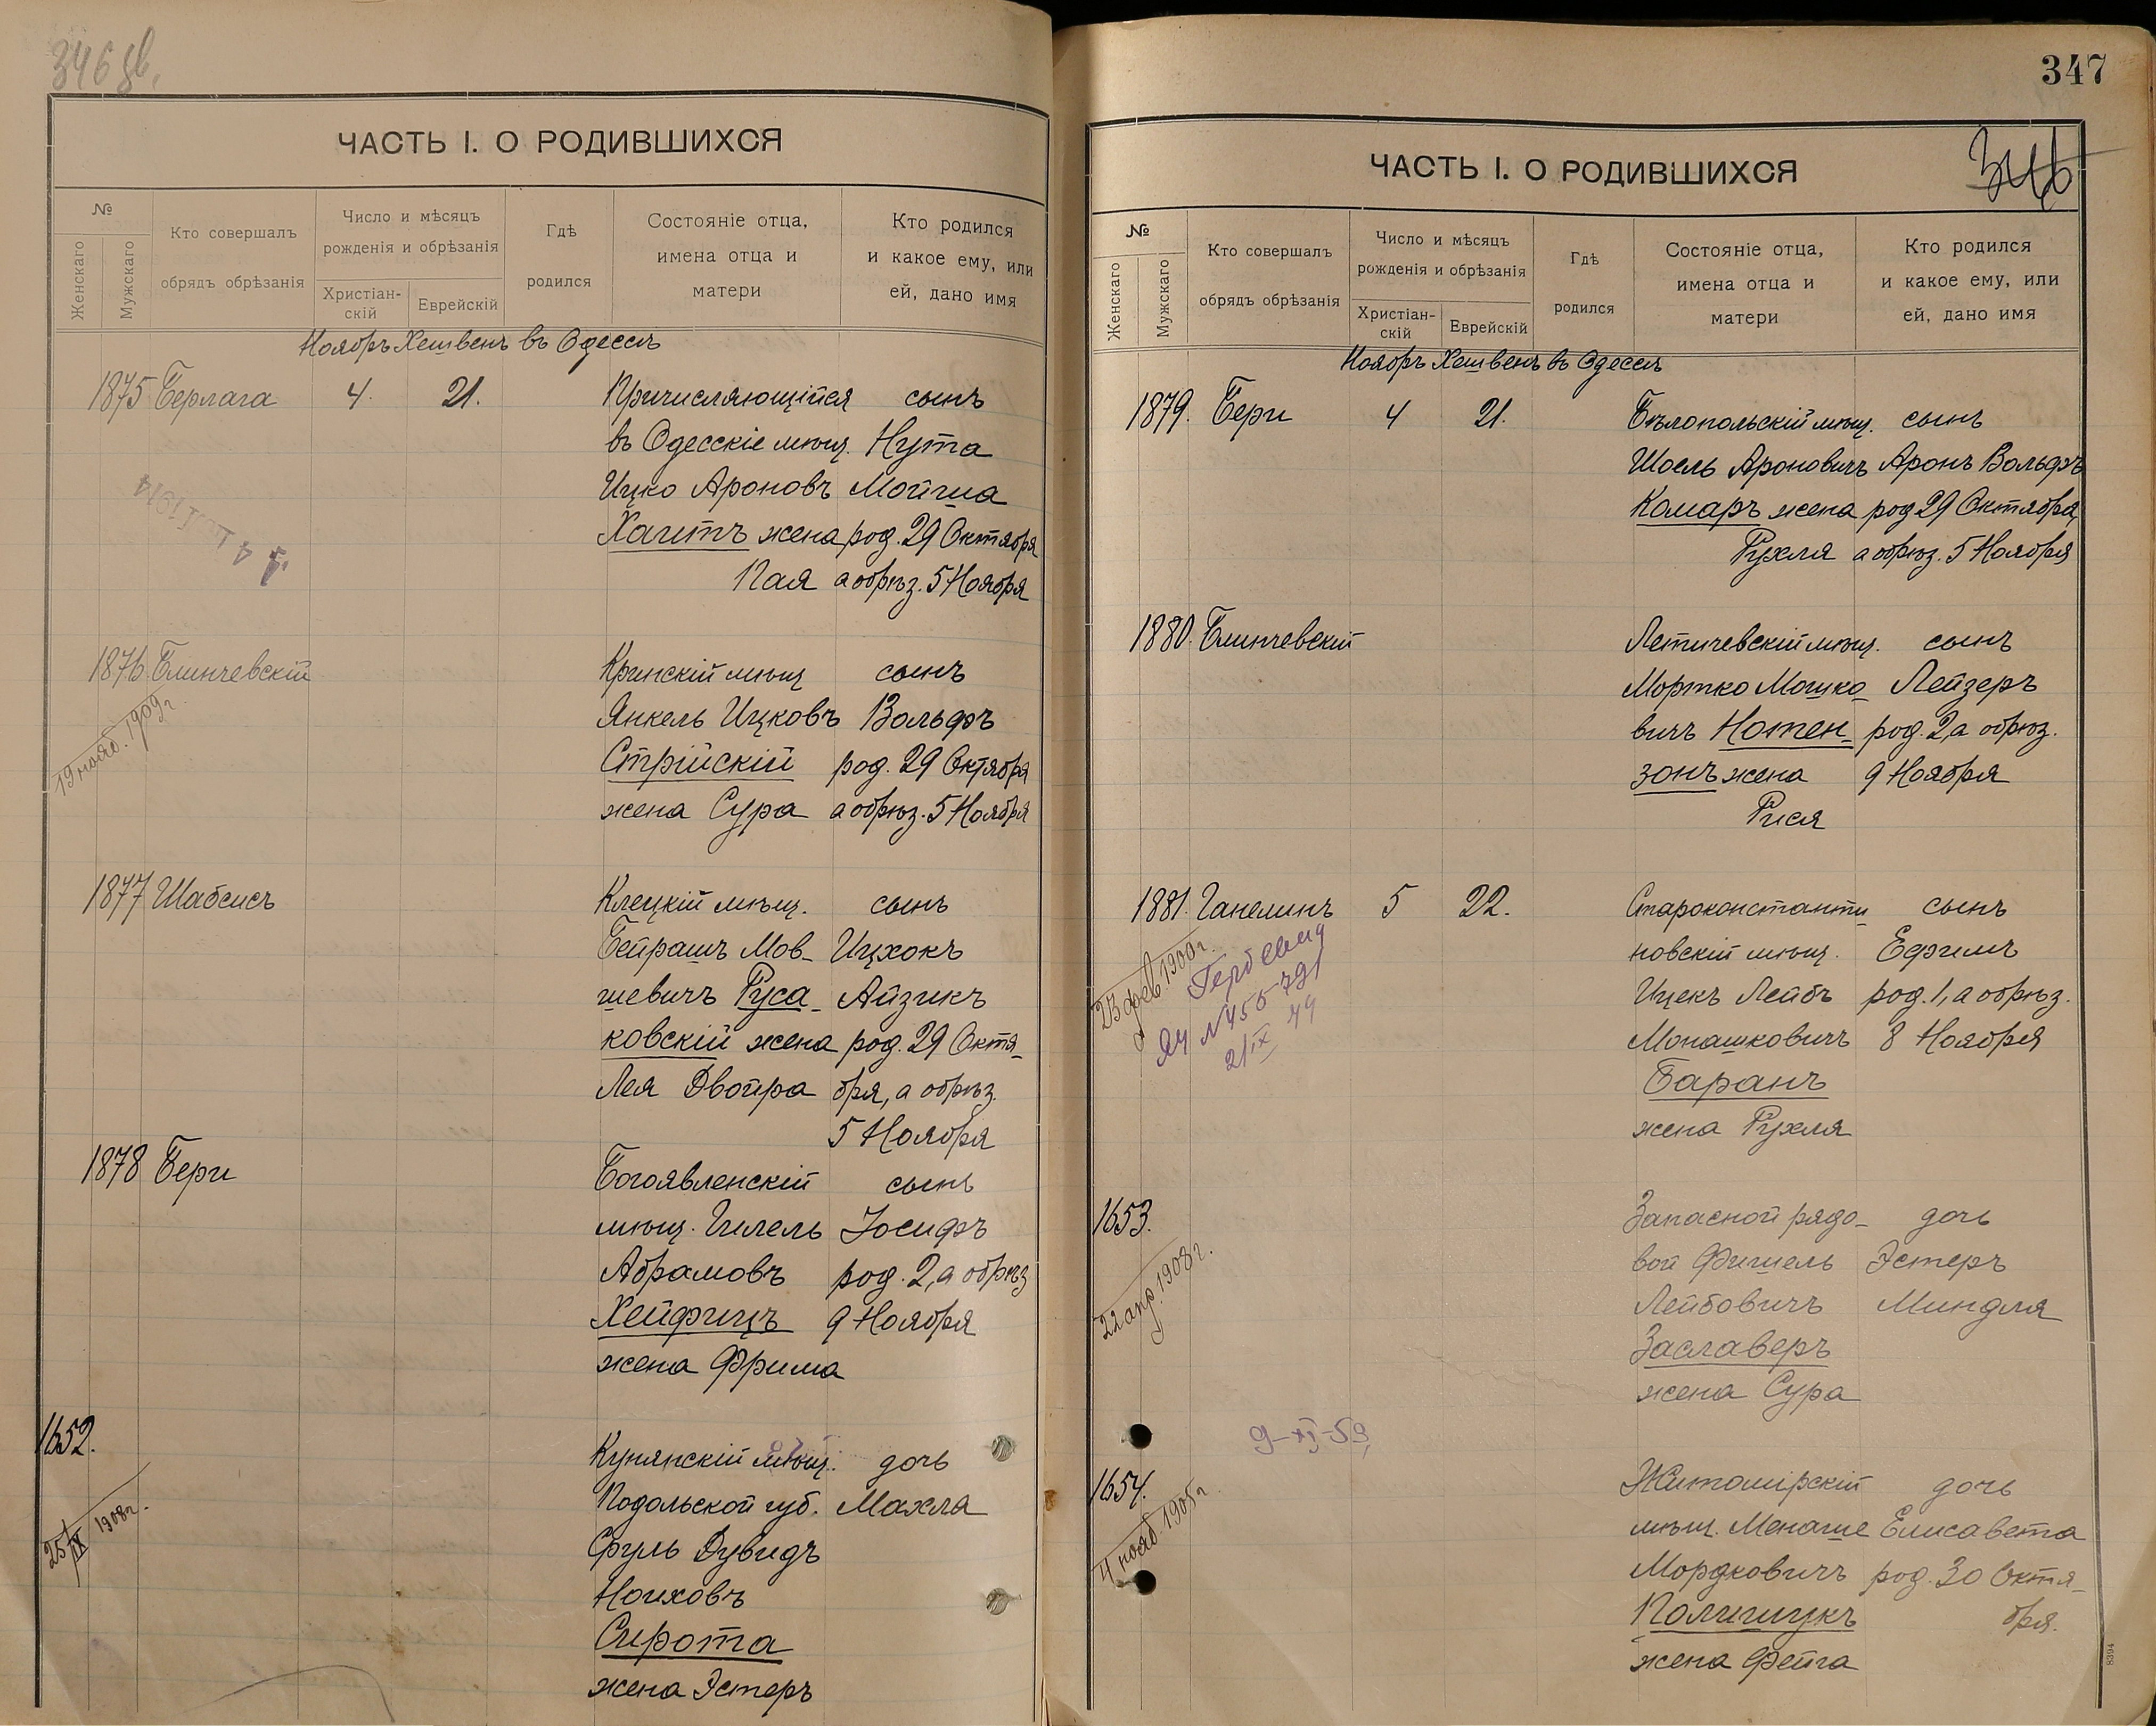 346 об.
ЧАСТЬ I. О РОДИВШИХСЯ
№
Женскаго
Мужскаго
Кто совершалъ
обрядъ обрѣзанія
Число и мѣсяцъ
рожденія и обрѣзанія
Христіан-
скій
Еврейскій
Гдѣ
родился
Состояніе отца,
имена отца и
матери
Кто родился
и какое ему, или
ей, дано имя
Ноябрь Хешвенъ въ Одессѣ
1875 Берлага 4. 21. Причисляющійся сынъ
въ Одесскіе мѣщ. Нута
Ицко Ароновъ Мойша
Хагитъ жена род. 29 Октября
Пая а обрѣз. 5 Ноября
1876 Блинчевскій Кринскій мѣщ сынъ
19 нояб. 1909 г.
Янкель Ицковъ Вольфъ
Стрійскій род. 29 Октября
жена Сура а обрѣз. 5 Ноября
1877 Шабсисъ Клецкій мѣщ. сынъ
Бейрашъ Мов- Ицхокъ
шевичъ Руса- Айзикъ
ковскій жена род. 29 Октя-
Лея Двойра бря, а обрѣз.
5 Ноября
1878 Бери Богоявленскій сынъ
мѣщ. Гилель Іосифъ
Абрамовъ род. 2, а обрѣз
Хейфицъ 9 Ноября
жена Фрима
1652. Кунянскій мѣщ. дочь
25/IX 1908 г.
Подольской губ. Махла
Сруль Дувидъ
Ноиховъ
Сирота
жена Эстеръ
347
346
ЧАСТЬ I. О РОДИВШИХСЯ
№
Женскаго
Мужскаго
Кто совершалъ
обрядъ обрѣзанія
Число и мѣсяцъ
рожденія и обрѣзанія
Христіан-
скій
Еврейскій
Гдѣ
родился
Состояніе отца,
имена отца и
матери
Кто родился
и какое ему, или
ей, дано имя
Ноябрь Хешвенъ въ Одессѣ
1879. Бери 4 21. Бѣлопольскій мѣщ. сынъ
Шоель Ароновичъ Аронъ Вольфъ
Комаръ жена род 29 Октября,
Рухля а обрѣз. 5 Ноября
1880. Блинчевскій Летичевскій мѣщ. сынъ
Мортко Мошко- Лейзеръ
вичъ Нотен- род. 2, а обрѣз.
зонъ жена 9 Ноября
Рися
1881. Ганелинъ 5 22. Староконстанти- сынъ
23 фев 1900 г.
новскій мѣщ. Ефимъ
Ицекъ Лейбъ род. 1, а обрѣз.
Монашковичъ 8 Ноября
Баранъ
жена Рухля
21 IX 44
1653. Запасной рядо- дочь
22 апр. 1908 г.
вой Фишель Эстеръ
Лейбовичъ Миндля
Заславеръ
жена Сура
9-XI-59,
1654. Житомирскій дочь
4 нояб. 1905 г.
мѣщ. Менаше Елисавета
Мордковичъ род. 30 Октя-
Полищукъ бря.
жена Фейга
8394